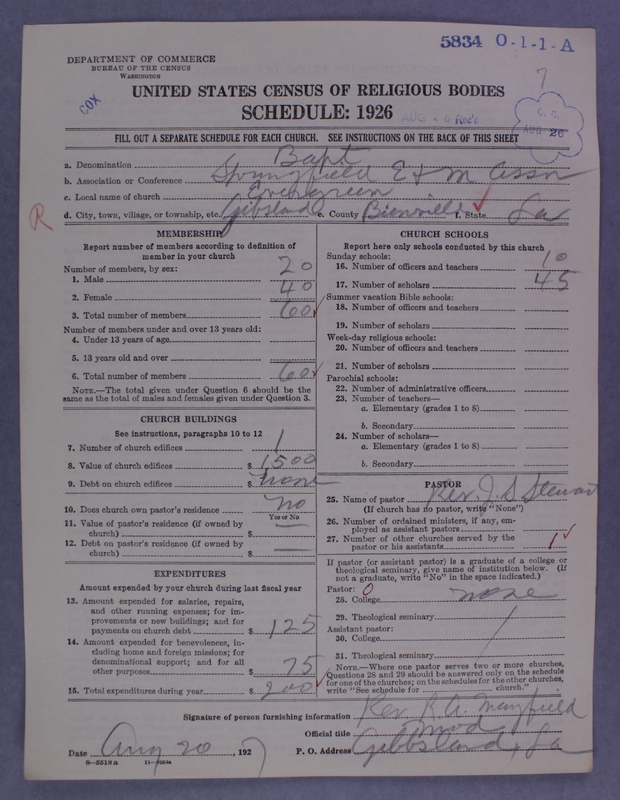 5834 O-1-1-A
7
DEPARTMENT OF COMMERCE
BUREAU OF THE CENSUS
WASHINGTON
COX
UNITED STATES CENSUS OF RELIGIOUS BODIES
SCHEDULE: 1926
AUG 26 Rec'd
C. C.
AUG 26
FILL OUT A SEPARATE SCHEDULE FOR EACH CHURCH. SEE INSTRUCTIONS ON THE BACK OF THIS SHEET
a. Denomination Bapt
b. Association or Conference Springfield E & M Assn
c. Local name of church Evergreen
R
d. City, town, village, or township, etc. Gibsland e. County Bienville f. State La
MEMBERSHIP
Report number of members according to definition of
member in your church
Number of members, by sex:
1. Male 20
2. Female 40
3. Total number of members 60
Number of members under and over 13 years old:
4. Under 13 years of age
5. 13 years old and over
6. Total number of members 60
NOTE.—The total given under Question 6 should be the
same as the total of males and females given under Question 3.
CHURCH BUILDINGS
See instructions, paragraphs 10 to 12
7. Number of church edifices 1
8. Value of church edifices $ 1500
9. Debt on church edifices $ none
10. Does church own pastor's residence no
Yes or No
11. Value of pastor's residence (if owned by
church) $ —
12. Debt on pastor's residence (if owned by
church) $ —
EXPENDITURES
Amount expended by your church during last fiscal year
13. Amount expended for salaries, repairs,
and other running expenses; for im-
provements or new buildings; and for
payments on church debt $ 125
14. Amount expended for benevolences, in-
cluding home and foreign missions; for
denominational support; and for all
other purposes $ 75
15. Total expenditures during year $ 200
CHURCH SCHOOLS
Report here only schools conducted by this church
Sunday schools:
16. Number of officers and teachers 10
17. Number of scholars 45
Summer vacation Bible schools:
18. Number of officers and teachers
19. Number of scholars
Week-day religious schools:
20. Number of officers and teachers
21. Number of scholars
Parochial schools:
22. Number of administrative officers
23. Number of teachers—
a. Elementary (grades 1 to 8)
b. Secondary
24. Number of scholars—
a. Elementary (grades 1 to 8)
b. Secondary
PASTOR
25. Name of pastor Rev. J. S Stewart
(If church has no pastor, write "None")
26. Number of ordained ministers, if any, em-
ployed as assistant pastors
27. Number of other churches served by the
pastor or his assistants 1
If pastor (or assistant pastor) is a graduate of a college or
theological seminary, give name of institution below. (If
not a graduate, write "No" in the space indicated.)
Pastor: 0
28. College none
29. Theological seminary
Assistant pastor:
30. College
31. Theological seminary
NOTE.—Where one pastor serves two or more churches,
Questions 28 and 29 should be answered only on the schedule
for one of the churches; on the schedules for the other churches,
write "See schedule for church."
Signature of person furnishing information Rev R. A. Mayfield
Official title Mod
Date Aug 20, 1927 P. O. Address Gibbsland, La
8—5518a